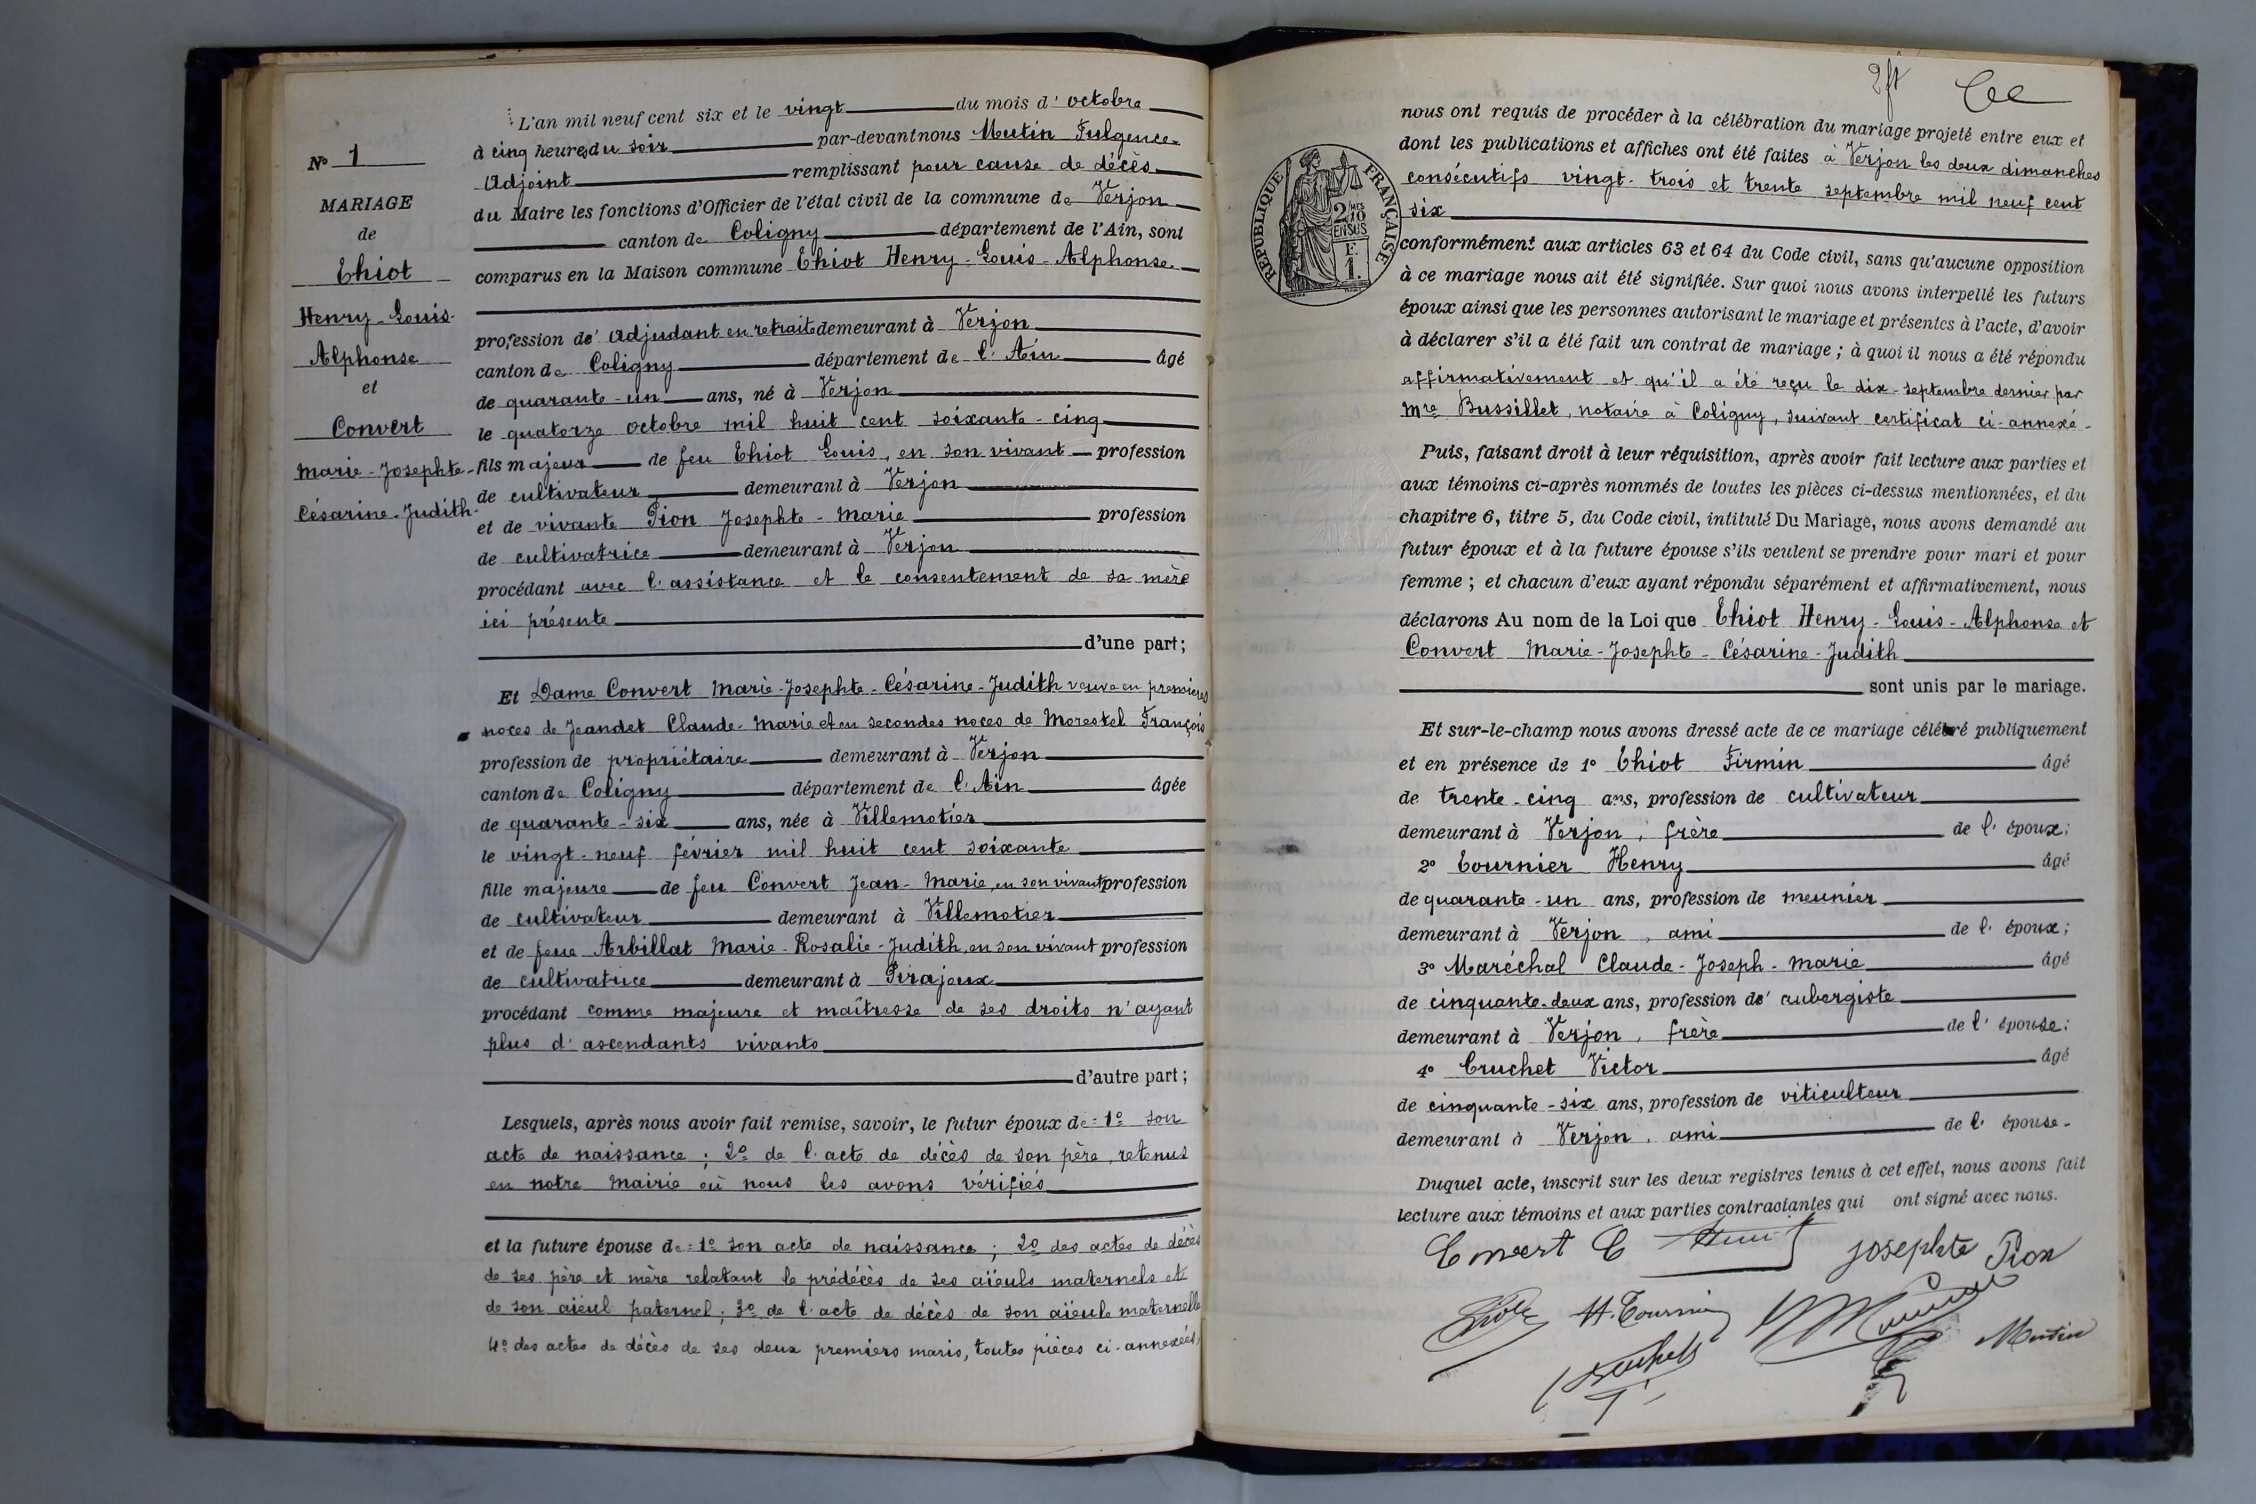 N° 1
MARIAGE
de
Thiot
Henry-Louis-
Alphonse
et
Convert
Marie-Josephte-
Césarine-Judith.
L'an mil neuf cent six et le vingt du mois d'octobre
à cinq heures du soir par-devant nous Mutin Fulgence
Adjoint remplissant pour cause de décès
du Maire les fonctions d'Officier de l'état civil de la commune de Verjon
canton de Coligny département de l'Ain, sont
comparus en la Maison commune Thiot Henry-Louis-Alphonse
profession d'Adjudant en retraite demeurant à Verjon
canton de Coligny département de l'Ain âgé
de quarante-un ans, né à Verjon
le quatorze octobre mil huit cent soixante-cinq
fils majeur de feu Thiot Louis, en son vivant profession
de cultivateur demeurant à Verjon
et de vivante Pion Josephte-Marie profession
de cultivatrice demeurant à Verjon
procédant avec l'assistance et le consentement de sa mère
ici présente
d'une part;
Et Dame Convert Marie-Josephte-Césarine-Judith veuve en premières
noces de Jeandet Claude-Marie et en secondes noces de Morestel François
profession de propriétaire demeurant à Verjon
canton de Coligny département de l'Ain âgée
de quarante-six ans, née à Villemotier
le vingt-neuf février mil huit cent soixante
fille majeure de feu Convert Jean-Marie, en son vivant profession
de cultivateur demeurant à Villemotier
et de feue Arbillat Marie-Rosalie-Judith, en son vivant profession
de cultivatrice demeurant à Pirajoux
procédant comme majeure et maîtresse de ses droits n'ayant
plus d'ascendants vivants
d'autre part;
Lesquels, après nous avoir fait remise, savoir, le futur époux de = 1° son
acte de naissance; 2° de l'acte de décès de son père, retenus
en notre Mairie où nous les avons vérifiés
et la future épouse de = 1° son acte de naissance; 2° des actes de décès
de ses père et mère relatant le prédécès de ses aïeuls maternels et
de son aïeul paternel; 3° de l'acte de décès de son aïeule maternelle
4° des actes de décès de ses deux premiers maris, toutes pièces ci-annexées,
2ft
RÉPUBLIQUE FRANÇAISE
2/10 EN SUS
F. 1.
nous ont requis de procéder à la célébration du mariage projeté entre eux et
dont les publications et affiches ont été faites à Verjon les deux dimanches
consécutifs vingt-trois et trente septembre mil neuf cent
six
conformément aux articles 63 et 64 du Code civil, sans qu'aucune opposition
à ce mariage nous ait été signifiée. Sur quoi nous avons interpellé les futurs
époux ainsi que les personnes autorisant le mariage et présentes à l'acte, d'avoir
à déclarer s'il a été fait un contrat de mariage; à quoi il nous a été répondu
affirmativement et qu'il a été reçu le dix septembre dernier par
Mre Bussillet, notaire à Coligny, suivant certificat ci-annexé-
Puis, faisant droit à leur réquisition, après avoir fait lecture aux parties et
aux témoins ci-après nommés de toutes les pièces ci-dessus mentionnées, et du
chapitre 6, titre 5, du Code civil, intitulé Du Mariage, nous avons demandé au
futur époux et à la future épouse s'ils veulent se prendre pour mari et pour
femme; et chacun d'eux ayant répondu séparément et affirmativement, nous
déclarons Au nom de la Loi que Thiot Henry-Louis-Alphonse et
Convert Marie-Josephte-Césarine-Judith
sont unis par le mariage.
Et sur-le-champ nous avons dressé acte de ce mariage célébré publiquement
et en présence de 1° Thiot Firmin âgé
de trente-cinq ans, profession de cultivateur
demeurant à Verjon, frère de l'époux;
2° Tournier Henry âgé
de quarante-un ans, profession de meunier
demeurant à Verjon, ami de l'époux;
3° Maréchal Claude-Joseph-Marie âgé
de cinquante-deux ans, profession d'aubergiste
demeurant à Verjon, frère de l'épouse;
4° Cruchet Victor âgé
de cinquante-six ans, profession de viticulteur
demeurant à Verjon, ami de l'épouse.
Duquel acte, inscrit sur les deux registres tenus à cet effet, nous avons fait
lecture aux témoins et aux parties contractantes qui ont signé avec nous.
Convert C Thiot Josephte Pion
Thiot H. Tournier
Cruchet Mutin